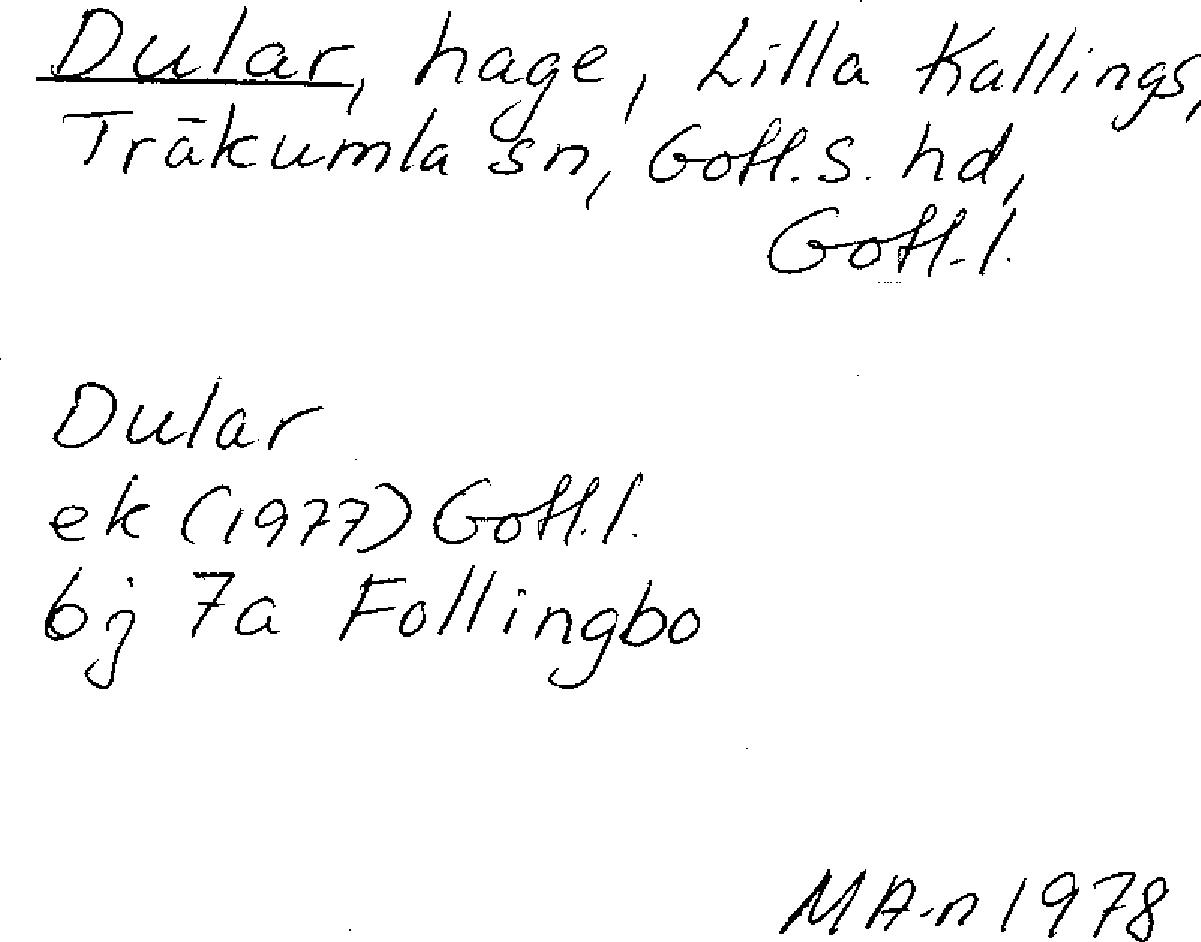 Dular, hage, Lilla Kallings,
Träkumla sn, Gotl. s. hd,
Gotl. l.
Dular
ek (1977) Gotl. l.
6j 7a Follingbo
MA-n 1978